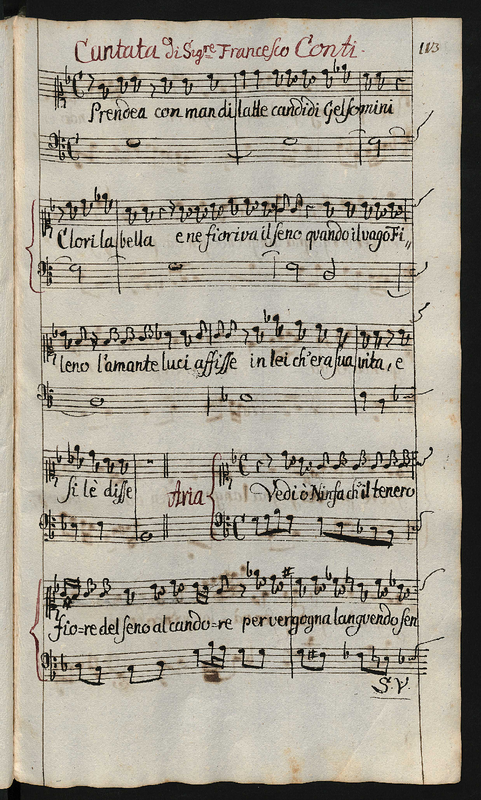 Cantata di Sigre Francesco Conti. 113
Prendea con man di latte candidi Gelsomini
Clori la bella e ne fioriva il seno quando il vago Fi,,
leno l'amante luci affisse in lei ch'era sua vita, e
si lè disse Aria Vedi ò Ninfa ch'il tenero
fio=re del seno al cando=re per vergogna languendo sen
S. V.